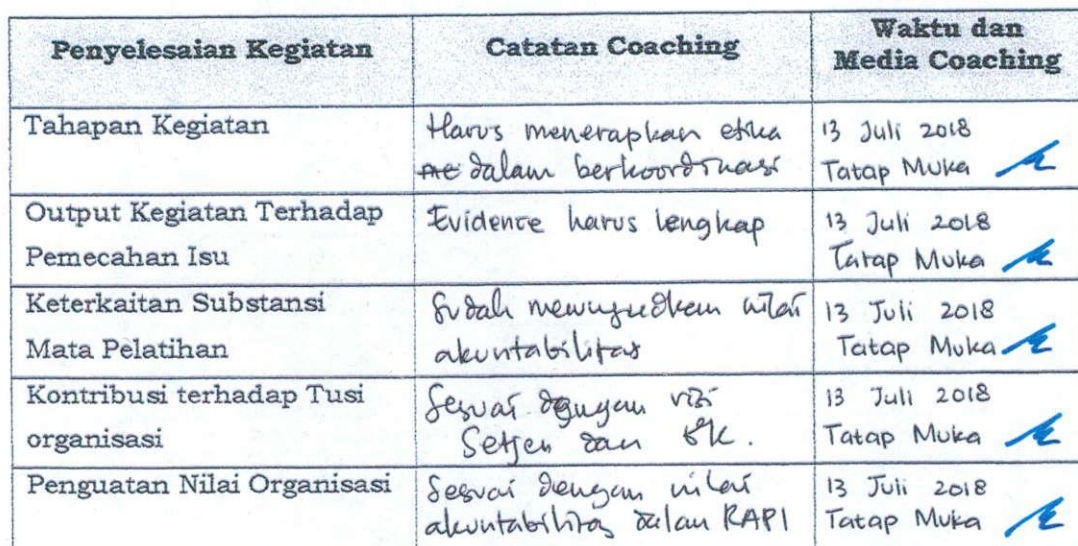 Penyelesaian Kegiatan
Catatan Coaching
Waktu dan
Media Coaching
Tahapan Kegiatan
Harus menerapkan etika
dalam berkoordinasi
13 Juli 2018
Tatap Muka
Output Kegiatan Terhadap
Pemecahan Isu
Evidence harus lengkap
13 Juli 2018
Tatap Muka
Keterkaitan Substansi
Mata Pelatihan
Sudah mewujudkan nilai
akuntabilitas
13 Juli 2018
Tatap Muka
Kontribusi terhadap Tusi
organisasi
Sesuai dengan visi
Setjen dan BK.
13 Juli 2018
Tatap Muka
Penguatan Nilai Organisasi
Sesuai dengan nilai
akuntabilitas dalam RAPI
13 Juli 2018
Tatap Muka